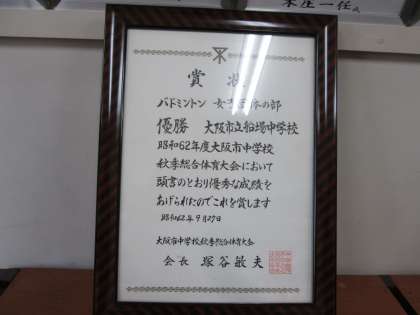 末庄一任
賞状
バドミントン 女子団体の部
優勝 大阪市立船場中学校
昭和62年度大阪市中学校
秋季総合体育大会において
頭書のとおり優秀な成績を
あげられたのでこれを賞します
昭和62年9月27日
大阪市中学校秋季総合体育大会
会長 塚谷敏夫